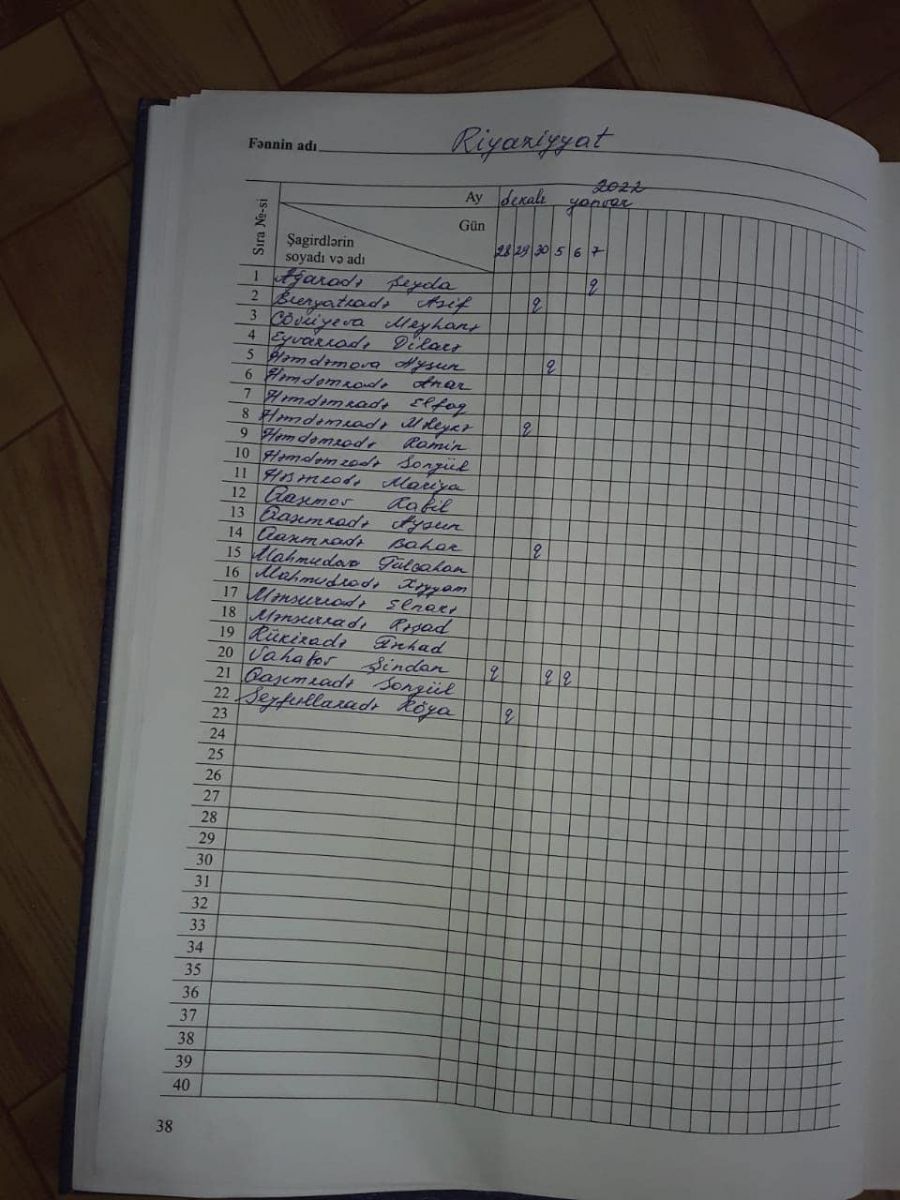 Fənnin adı Riyaziyyat
Sıra №-si
Ay Dekabr 2022 yanvar
Gün
Şagirdlərin
soyadı və adı
28 29 30 5 6 7
1 Ağazadə Şeyda q
2 Bünyatzadə Asif q
3 Cövziyeva Meyhanə
4 Eyvazzadə Dilarə
5 Həmdəmova Aysun q
6 Həmdəmzadə Anar
7 Həmdəmzadə Elfaq
8 Həmdəmzadə Mələykə q
9 Həmdəmzadə Ramin
10 Həmdəmzadə Songül
11 Həsənzadə Mariya
12 Qasımov Kabil
13 Qasımzadə Aysun
14 Qasımzadə Bahar q
15 Mahmudova Gülcahan
16 Mahmudzadə Xəyyam
17 Mənsurzadə Elnarə
18 Mənsurzadə Rəşad
19 Fərhad
20 Vahabov Şindan q q q
21 Qasımzadə Songül
22 Seyfullazadə Röya q
23
24
25
26
27
28
29
30
31
32
33
34
35
36
37
38
39
40
38